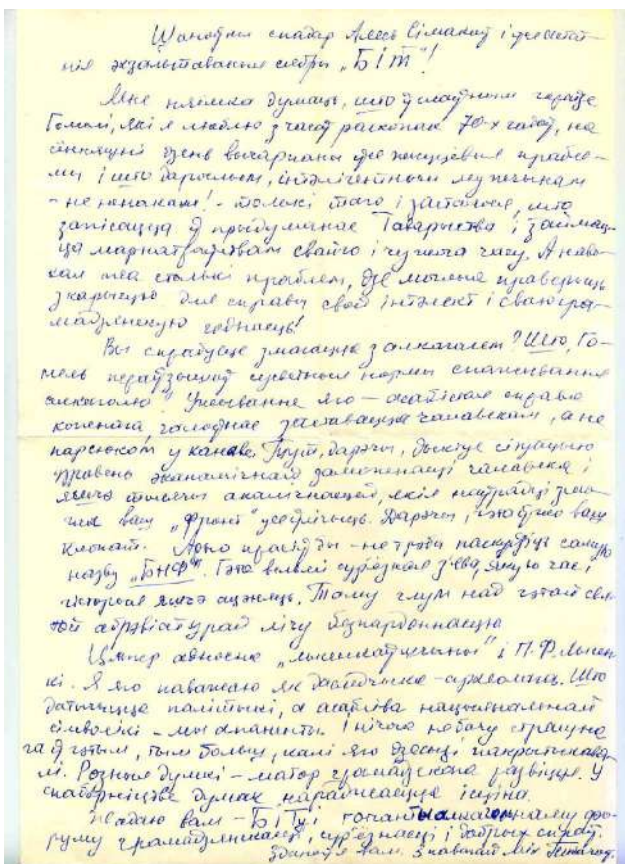 Шаноўны спадар Алесь Сімакоў і
экзальтаваныя сябры „БІТ"!
Мне няёмка думаць, што ў слаўным горадзе
Гомлі, які я люблю з часоў раскопак 70-х гадоў, на
дзень вычарпаны ўсе жыццёвыя прабле-
мы і што дарослым, інтэлігентным мужчынам
- не юнакам! - толькі таго і засталося, што
запісацца ў прыдуманае Таварыства і займац-
ца марнатраўствам свайго і чужога часу. А наво-
кал жа столькі праблем, дзе можна праверыць
з карысцю для справы свой інтэлект і сваю гра-
мадзянскую годнасць!
Вы змагацца з алкаголем? Што, Го-
мель нормы спажывання
алкаголю? Ужыванне яго - асабістая справа
кожнага, галоўнае заставацца чалавекам, а не
парсюком у канаве. Тут, дарэчы, дыктуе сітуацыю
узровень эканамічнай заможнасці чалавека і
яшчэ тысячы акалічнасцей, якія наўрад ці змо-
жа ваш „фронт" улічыць. Дарэчы, гэта ўжо ваш
клопат. Адно прасіў бы - не трэба паскудзіць самую
назву „БНФ". Гэта вельмі сур'ёзная з'ява, якую час і
гісторыя яшчэ ацэняць. Таму глум над гэтай
абрэвіятурай лічу
Цяпер адносна і П.Ф. Лысен-
кі. Я яго паважаю як даследчыка-археолага. Што
датычыцца палітыкі, а асабліва нацыянальнай
сімволікі - мы апаненты. І нічога не бачу страшна-
га ў гэтым, тым больш, калі яго дзесьці пакрытыкава-
лі. Розныя думкі - матор грамадскага развіцця. У
спаборніцтве думак нараджаецца ісціна.
вам - БІТу і фо-
руму грамадзянскасці, сур'ёзнасці і добрых спраў.
Здароўя вам. З павагай Міх. Ткачоў.